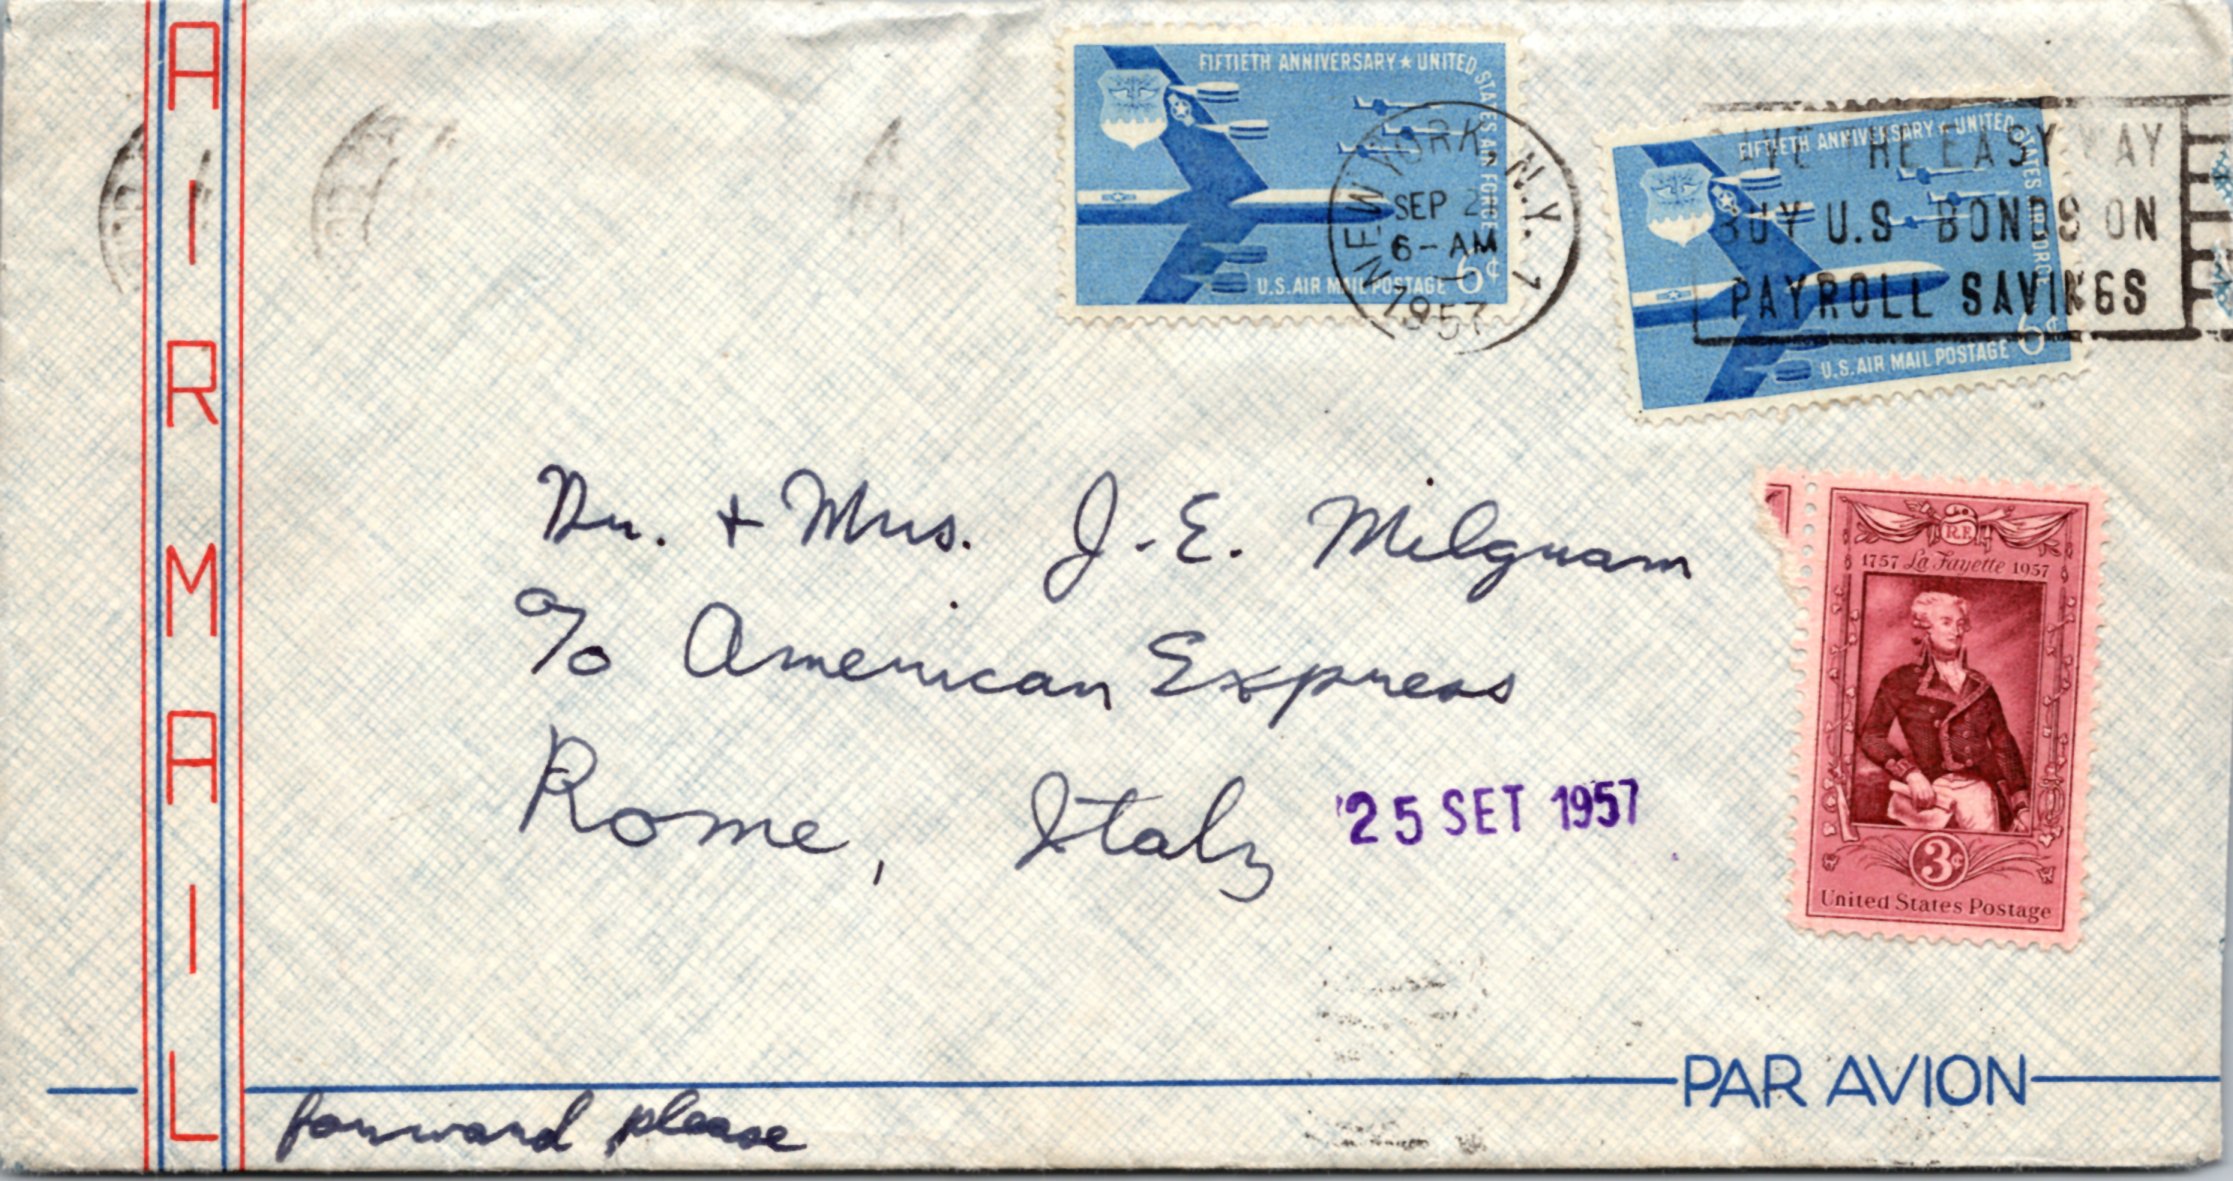 AIRMAIL
FIFTIETH ANNIVERSARY ★ UNITED STATES AIR FORCE
U.S. AIR MAIL POSTAGE 6¢
NEW YORK, N.Y. 1
SEP 2
6-AM
1957
FIFTIETH ANNIVERSARY ★ UNITED STATES AIR FORCE
U.S. AIR MAIL POSTAGE 6¢
SAVE THE EASY WAY
BUY U.S BONDS ON
PAYROLL SAVINGS
Dr. + Mrs. J. E. Milgram
c/o American Express
Rome, Italy
25 SET 1957
R.F.
1757 La Fayette 1957
3¢
United States Postage
PAR AVION
forward please